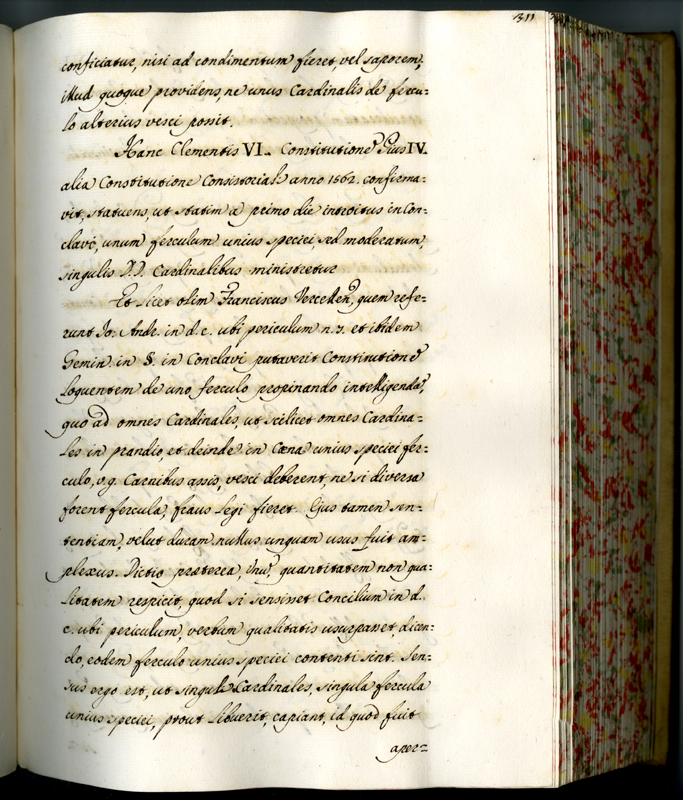 311
conficiatur, nisi ad condimentum fieret, vel saporem,
illud quoque providens, ne unus Cardinalis de fercu=
lo alterius vesci possit.
Hanc Clementis VI. Constitutione Pius IV.
alia Constitutione Consistoriali anno 1562. confirma=
vit, statuens, ut statim a primo die introitus in Con=
clavi, unum ferculum unius speciei, sed moderatum,
singulis D.D. Cardinalibus ministretur
Et licet olim Franciscus Vercellen, quem refe=
runt Jo: Andr. in d. c. ubi periculum n. 3. et ibidem
Gemin. in §. in Conclavi putaverit Constitutione
loquentem de uno ferculo propinando intelligenda,
quo ad omnes Cardinales, ut scilicet omnes Cardina=
les in prandio, et deinde in Cœna unius speciei fer=
culo, v.g. Carnibus assis, vesci deberent, ne si diversa
forent fercula, fraus legi fieret. Ejus tamen sen=
tentiam, velut duram nullus unquam usus fuit am=
plexus. Dictio præterea, quantitatem non qua=
litatem respicit, quod si sensisset Concilium in d.
c. ubi periculum, verbum qualitatis usurpasset dicen=
do, eodem ferculo unius speciei contenti sint. Sen=
sus ergo est, ut singuli Cardinales, singula fercula
unius speciei, prout libuerit, capiant, id quod fuit
aper=